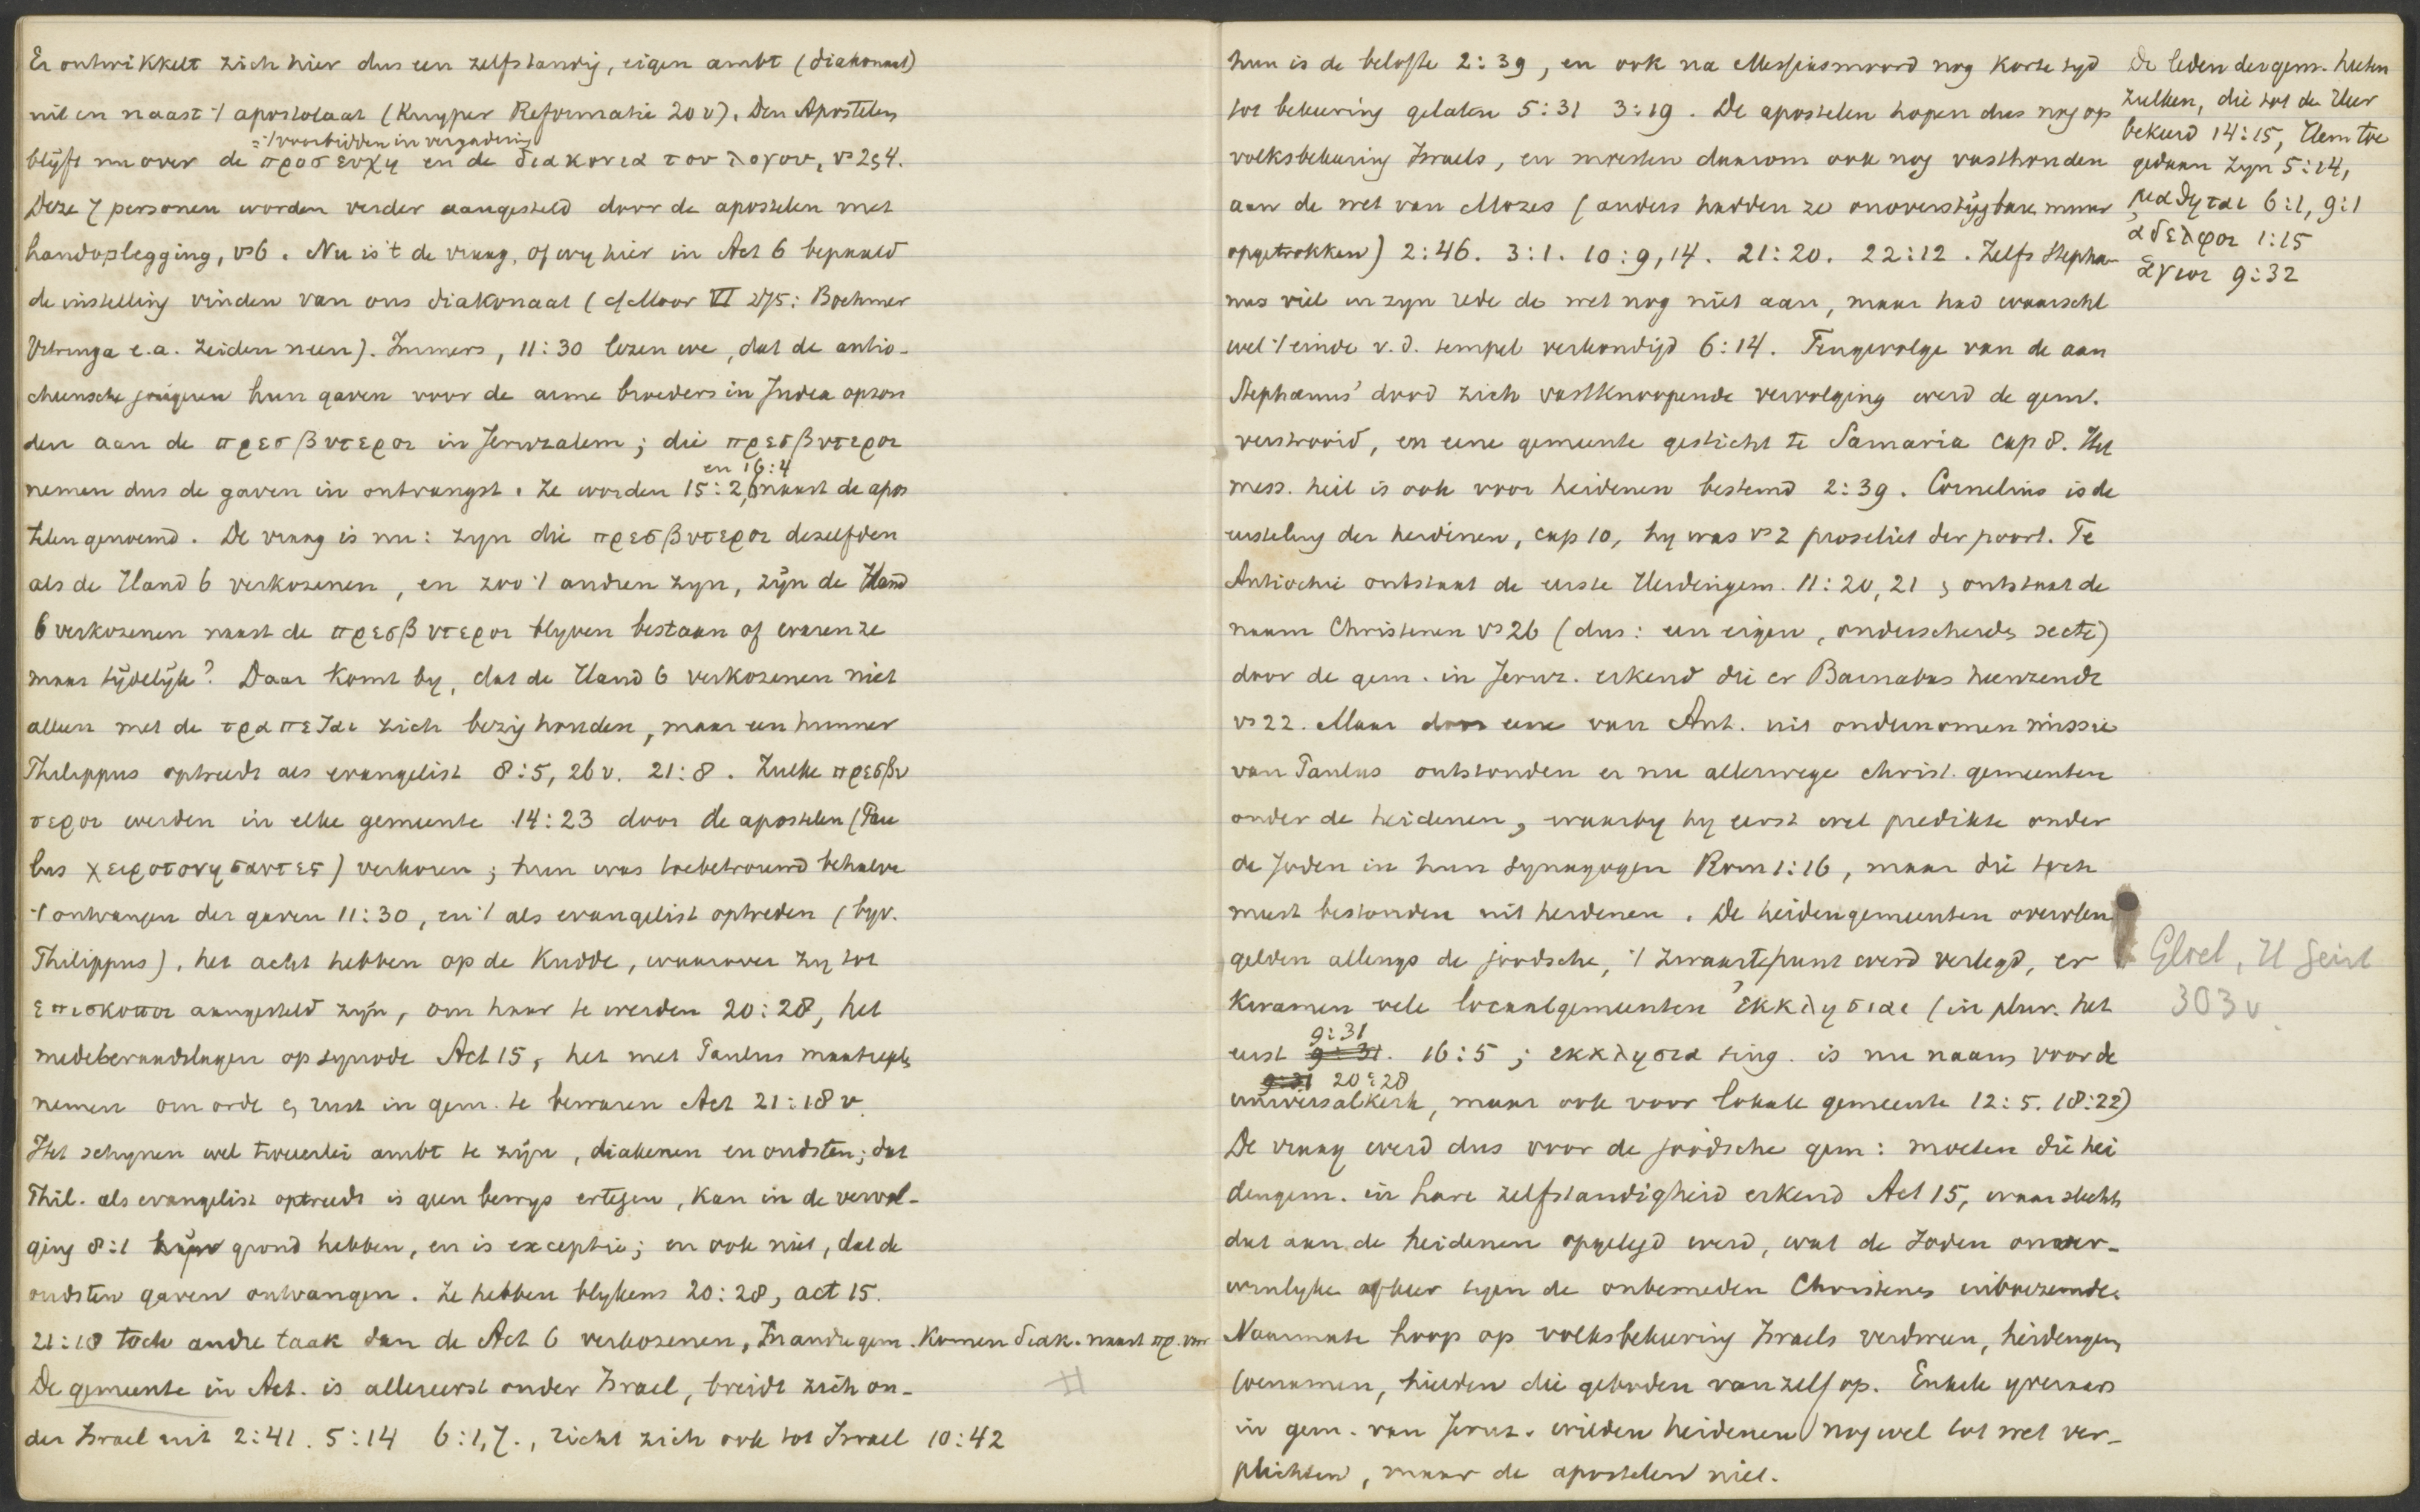 Er ontwikkelt zich hier dus een zelfstandig, eigen ambt (diakonaat)
uit en naast 't apostolaat (Kuyper Reformatie 20 v). Den Apostelen
= 't voorbidden in vergadering
blijft nu over de προσευχη en de διακονια του λογου, vs 2, 4.
Deze 7 personen worden verder aangesteld door de apostelen met
handoplegging, vs 6. Nu is 't de vraag, of wy hier in Act 6 bepaald
de instelling vinden van ons diakonaat (cf Moor VI 275: Boehmer
Vitringa e.a. zeiden neen). Immers, 11:30 lezen we, dat de antio-
cheensche jongeren hun gaven voor de arme broeders in Judea opzon
den aan de πρεσβυτεροι in Jeruzalem; die πρεσβυτεροι
en 16:4
nemen dus de gaven in ontvangst. Ze worden 15:2, 6 naast de apos
telen genoemd. De vraag is nu: zyn die πρεσβυτεροι dezelfden
als de Hand 6 verkozenen, en zoo 't andren zyn, zijn de Hand
6 verkozenen naast de πρεσβυτεροι blyven bestaan of waren ze
maar tijdelijk? Daar komt by, dat de Hand 6 verkozenen niet
alleen met de τραπεζαι zich bezig houden, maar een hunner
Philippus optreedt als evangelist 8:5, 26 v. 21:8. Zulke πρεσβυ
τεροι werden in elke gemeente 14:23 door de apostelen (Pau
lus χειροτονησαντες) verkoren; hun was toebetrouwd behalve
't ontvangen der gaven 11:30, en 't als evangelist optreden (byv.
Philippus), het acht hebben op de kudde, waarover zy tot
επισκοποι aangesteld zijn, om haar te weiden 20:28, het
medeberaadslagen op synode Act 15, het met Paulus maatregels
nemen om orde en rust in gem. te bewaren Act 21:18 v.
Het schynen wel tweeerlei ambt te zijn, diakenen en oudsten; dat
Phil. als evangelist optreedt is geen bewys ertegen, kan in de vervol-
ging 8:1 grond hebben, en is exceptie; en ook niet, dat de
oudsten gaven ontvangen. Ze hebben blykens 20:28, act 15.
21:18 toch andre taak dan de Act 6 verkozenen, In andre gem. komen diak. naast πρ. voor
De gemeente in Act. is allereerst onder Israel, breidt zich on-
der Israel uit 2:41. 5:14 6:1, 7., richt zich ook tot Israel 10:42
#
hun is de belofte 2:39, en ook na Messiasmoord nog korte tyd
tot bekeering gelaten 5:31 3:19. De apostelen hopen dus nog op
volksbekeering Israels, en moesten daarom ook nog vasthouden
aan de wet van Mozes (anders hadden ze onoverstijgbare muur
opgetrokken) 2:46. 3:1. 10:9, 14. 21:20. 22:12. Zelfs Stepha-
nus viel in zyn rede de wet nog niet aan, maar had waarschl
wel 't einde v.d. tempel verkondigd 6:14. Tengevolge van de aan
Stephanus' dood zich vastknoopende vervolging werd de gem.
verstrooid, en eene gemeente gesticht te Samaria cap 8. Het
mess. heil is ook voor heidenen bestemd 2:39. Cornelius is de
eersteling der heidenen, cap 10, hy was vs 2 proseliet der poort. Te
Antiochie ontstaat de eerste Heidengem. 11:20, 21, ontstaat de
naam Christenen vs 26 (dus: een eigen, onderscheiden secte)
door de gem. in Jeruz. erkend die er Barnabas heenzendt
vs 22. Maar door eene van Ant. uit ondernomen missie
van Paulus ontstonden er nu allerwege christ. gemeenten
onder de heidenen, waarby hy eerst wel predikte onder
de Joden in hun synagogen Rom 1:16, maar die toch
meest bestonden uit heidenen. De heidengemeenten overvleu
gelden allengs de joodsche, 't zwaartepunt werd verlegd, er
kwamen vele locaalgemeenten ἐκκλησιαι (in plur. het
9:31
eerst 9:31. 16:5; εκκλησια sing. is nu naam voor de
9:31 20:28
universalkerk, maar ook voor lokale gemeente 12:5. 18:22)
De vraag werd dus voor de joodsche gem: moeten die hei
dengem. in hare zelfstandigheid erkend Act 15, waar slechts
dat aan de heidenen opgelegd werd, wat de Joden onover-
winlyke afkeer tegen de onbesneden Christenen inboezemde.
Naarmate hoop op volksbekeering Israels verdween, heidengem
toenamen, hielden die geboden vanzelf op. Enkele yveraars
in gem. van Jeruz. wilden heidenen nog wel tot wet ver-
plichten, maar de apostelen niet.
De leden der gem. heeten
zulken, die tot de Heer
bekeerd 14:15, Hem toe
gedaan zyn 5:14,
μαθηται 6:1, 9:1
αδελφοι 1:15
ἁγιοι 9:32
Gloel, H Geist
303 v.